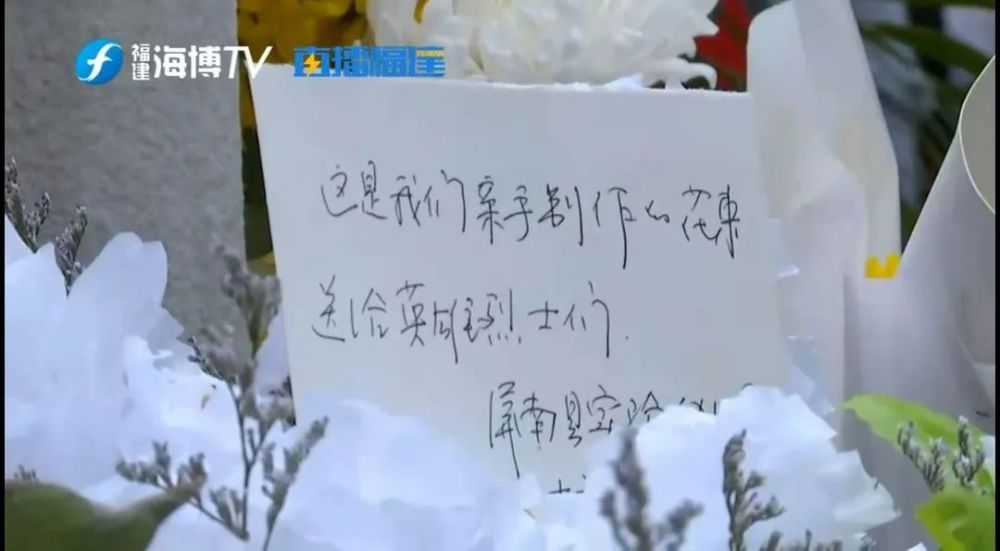 福建 海博TV 直播福建
这是我们亲手制作的花束
送给英雄烈士们.
屏南县实验